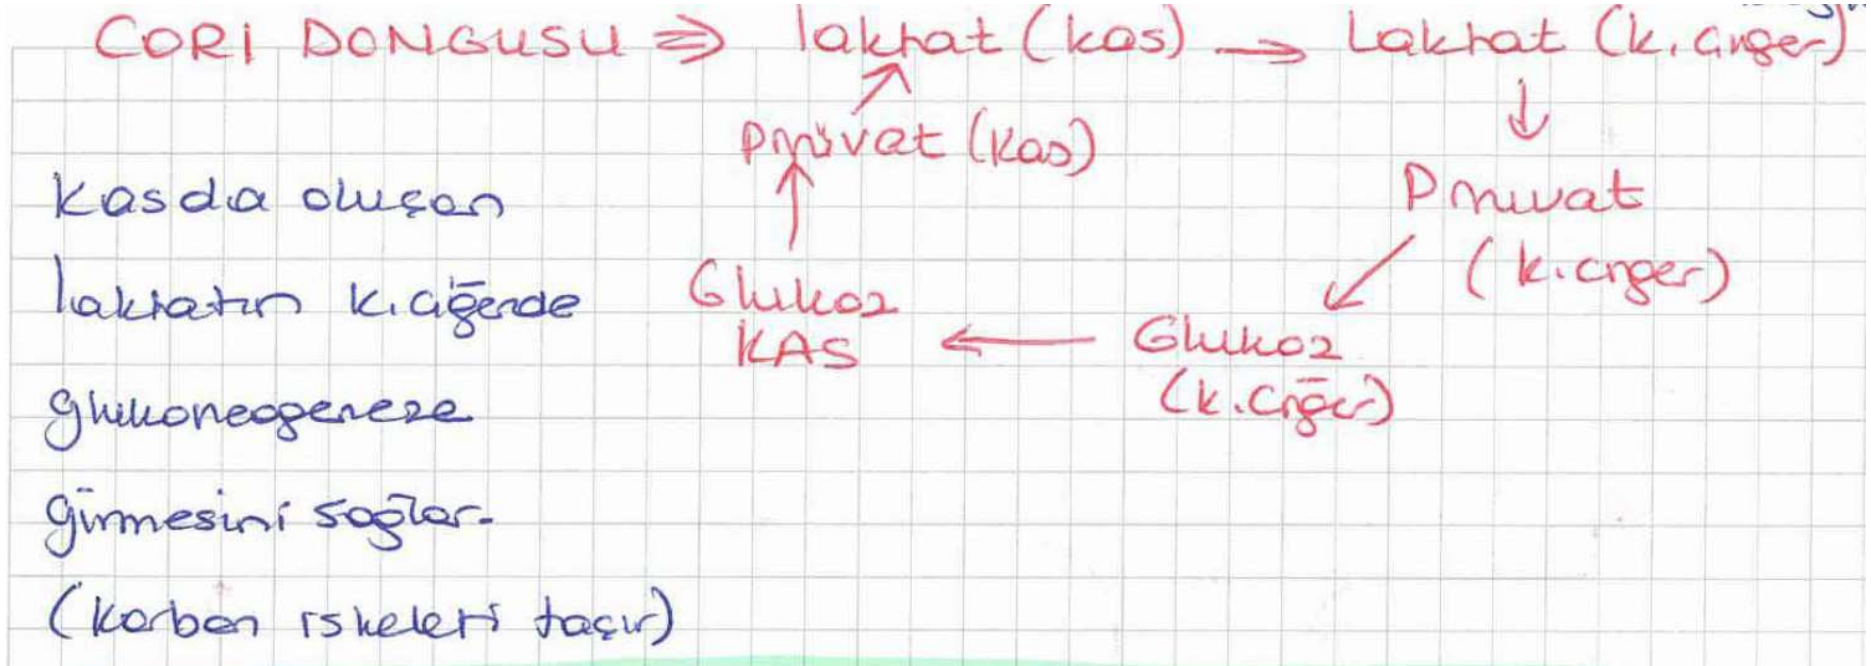 CORI DONGUSU ⇒ laktat (kas) → Laktat (k. ciğer)
↗ ↓
Prüvat (kas)
Pruvat
(k. ciğer)
↑ ↙
Glukoz
KAS ← Glukoz
(k. Ciğer)
Kasda oluşan
laktatın k. ciğerde
glukoneogeneze
girmesini sağlar.
(karbon iskeleti taşır)